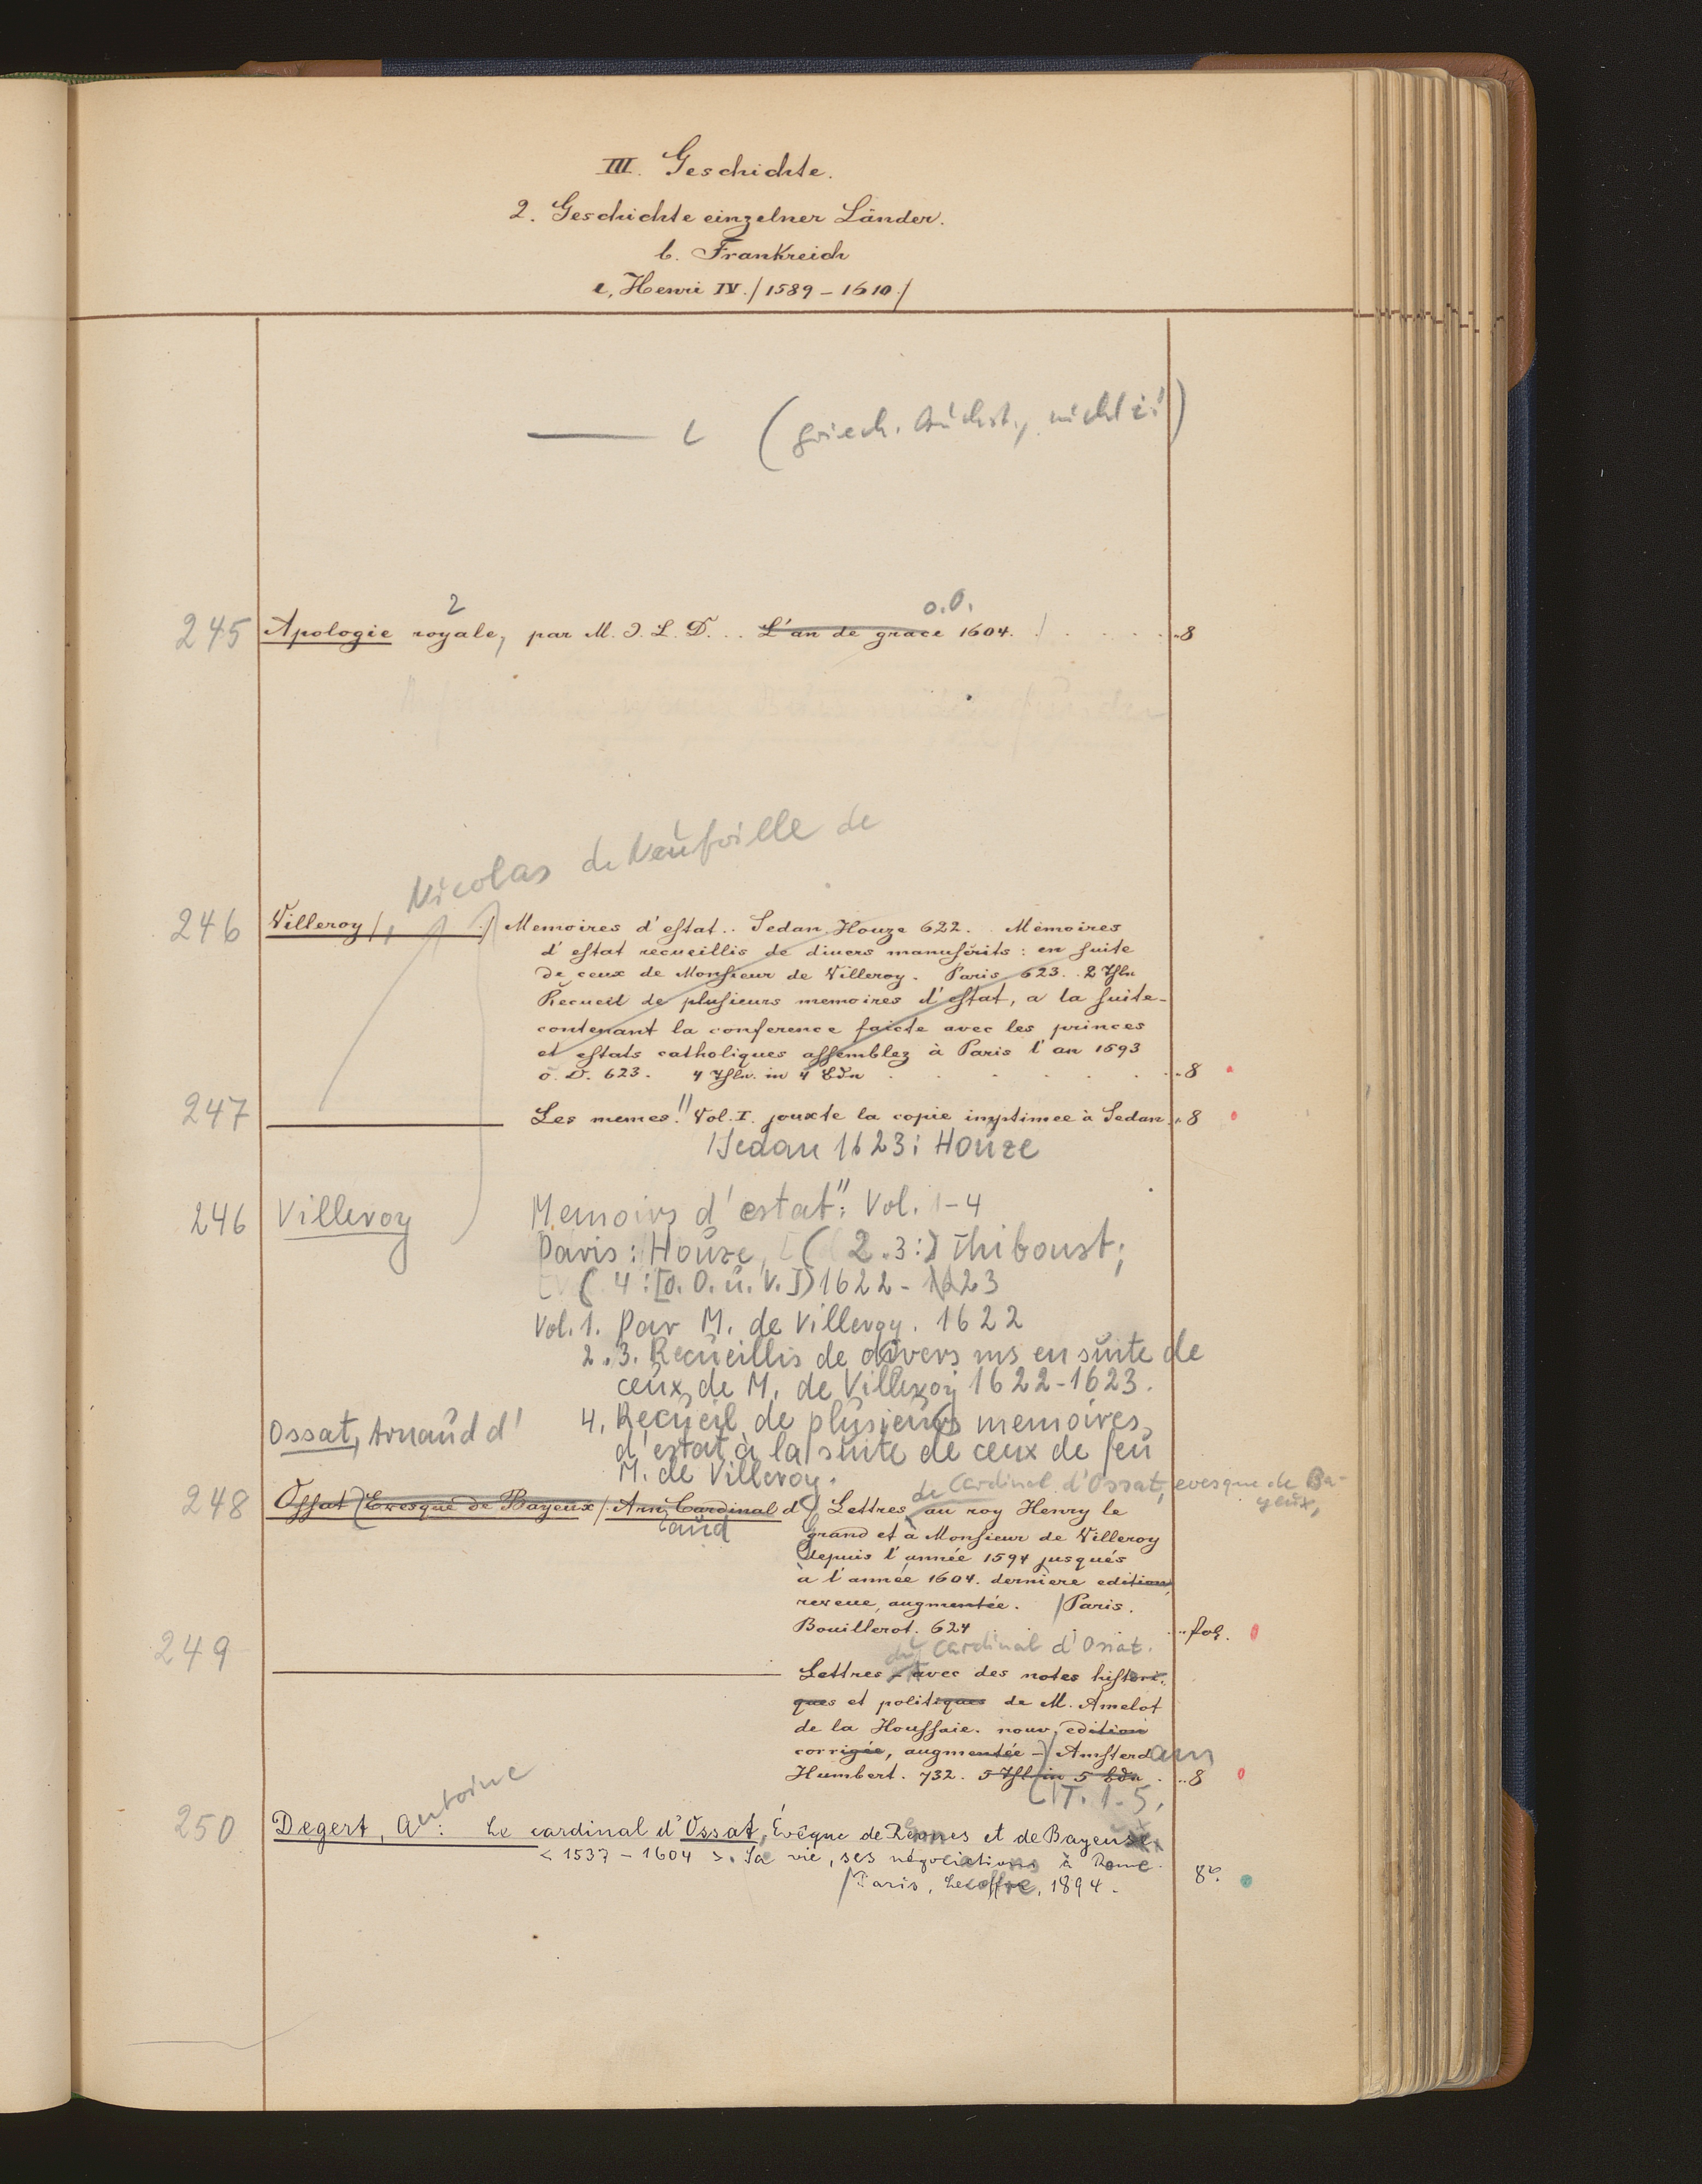 III. Geschichte.
2. Geschichte einzelner Länder.
b. Frankreich
ι, Henri IV. /1589-1610/
ι (griech. Buchst., nicht i!)
2 o.O.
245 Apologie royale, par M. J. L. D. .. L'an de grace 1604. 8
Nicolas de Neufville de
246 Villeroy /, /) Memoires d'estat.. Sedan Houze 622. Mémoires
d'estat recueillis de divers manuscrits: en suite
de ceux de Monsieur de Villeroy. Paris 623. 2 Thle
Recueil de plusieurs memoires d'estat, a la suite-
contenant la conference faicte avec les princes
et estats catholiques assemblez à Paris l'an 1593
o. O. 623. 4 Thle. in 4 Bdn 8
247 Les memes." Vol. I. jouxte la copie imptimee à Sedan 8
/Sedan 1623: Houze
246 Villeroy Memoirs d'estat": Vol. 1-4
Paris: Houze, (2.3:) Thiboust;
(4: [o. O. u. V.]) 1622-1623
Vol. 1. Par M. de Villeroy. 1622
2.3. Recueillis de divers ms en suite de
ceux de M. de Villeroy 1622-1623.
Ossat, Arnaud d' 4. Recueil de plusieurs memoires
d'estat à la suite de ceux de feu
M. de Villeroy.
de Cardinal d'Ossat, evesque de Ba-
yeux,
248 Ossat (Evesque de Bayeux / Arn. Cardinal d') Lettres au roy Henry le
aud Grand et à Monsieur de Villeroy
depuis l'année 1594 jusqués
à l'année 1604. derniere edition,
reveue, augmentée. /Paris.
Bouillerot. 624 fol.
249 du Cardinal d'Ossat.
Lettres - avec des notes histori-
ques et politiques de M. Amelot
de la Houssaie. nouv. edition
corrigée, augmentée - / Amsterdam
Humbert. 732. 5 Thl. in 5 Bdn. 8
T. 1-5.
Antoine
250 Degert, A : Le cardinal d'Ossat, Évêque de Rennes et de Bayeux.
< 1537 - 1604 >. Sa vie, ses négociations à Rome.
/Paris, Lecoffre, 1894. 8°.